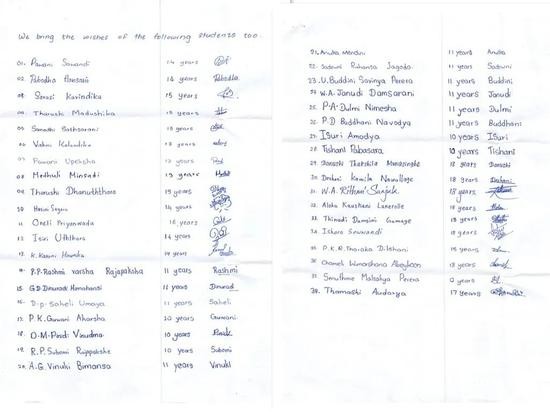 We bring the wishes of the following students too.
01. Pawani Sewandi 14 years
02. Pabodha Hansani 14 years Pabodha
03. Sanasi Kavindika 15 years
04. Tharushi Madushika 15 years
05. Sanadhi Sathsarani 13 years
06. Kalandika 13 years
07. Pawani Upeksha 13 years
08. Medhuli Minsadi 13 years
09. Tharushi Dhanuththara 15 years
10. 14 years
11. Oneli Priyanwada 16 years
12. Isiri Uththara 14 years
13. K. Kasuni 14 years
14. R.P. Rashmi Varsha Rajapaksha 11 years Rashmi
15. G.D. Dinuradi Hemahansi 11 years Dinurad
16. D.P. Saheli Umaya 11 years Saheli
17. P.K. Guwani Akarsha 20 years Guwani
18. O.M. Pindi Vinudma 10 years
19. R.P. Subomi Rajapakshe 10 years Subomi
20. A.G. Vinuki Bimansa 11 years Vinuki
21. Anuka Mandini 11 years Anuka
22. Saduni Ruhansa Jagoda 11 years Saduni
23. U. Buddini Savinya Perera 11 years Buddini
24. W.A. Janudi Damsarani 11 years Janudi
25. P.A. Dulmi Nimesha 11 years Dulmi
26. P.D Buddhani Navodya 11 years Buddhani
27. Isuri Amodya 10 years Isuri
28. Tishani Pabasara 10 years Tishani
29. Danoshi Thathila Manasinghe 18 years Danoshi
30. Kamila Nawallage 18 years
31. W.A. Rithmi Sanjala 18 years
32. Aloka Kaushani Lanerolle 18 years
33. Thinadi Damsini Gamage 18 years
34. Ishara Sewwandi 18 years
35. P.K.R. Tharaka Dilshani 15 years
36. Chameli Wimarshana Abeykoon 18 years
37. Senuthmie Malsahya Perera 9 years
38. Thamashi Avidarya 17 years